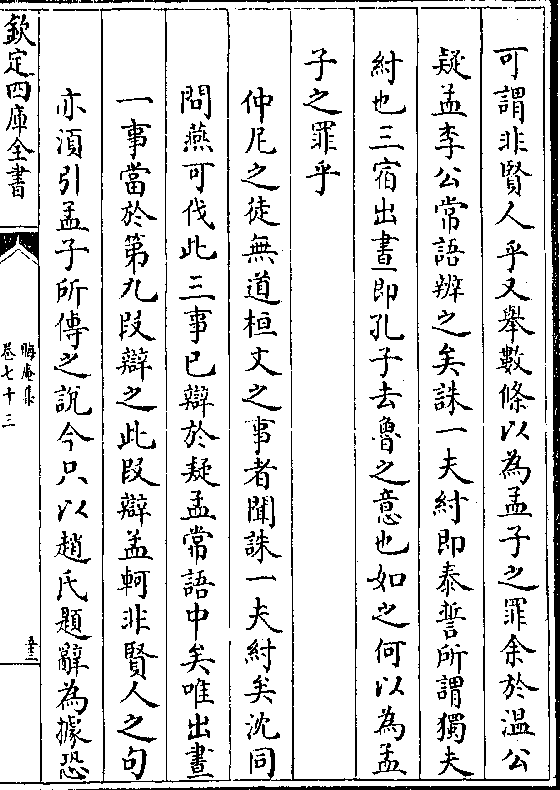 可謂非賢人乎又舉數條以為孟子之罪余於溫公
疑孟李公常語辨之矣誅一夫紂即泰誓所謂獨夫
紂也三宿出晝即孔子去魯之意也如之何以為孟
子之罪乎
仲尼之徒無道桓文之事者聞誅一夫紂矣沈同
問燕可伐此三事已辯於疑孟常語中矣唯出晝
一事當於第九段辯之此段辯孟軻非賢人之句
亦須引孟子所傳之說今只以趙氏題辭為據恐
欽定四庫全書
晦庵集
卷七十三